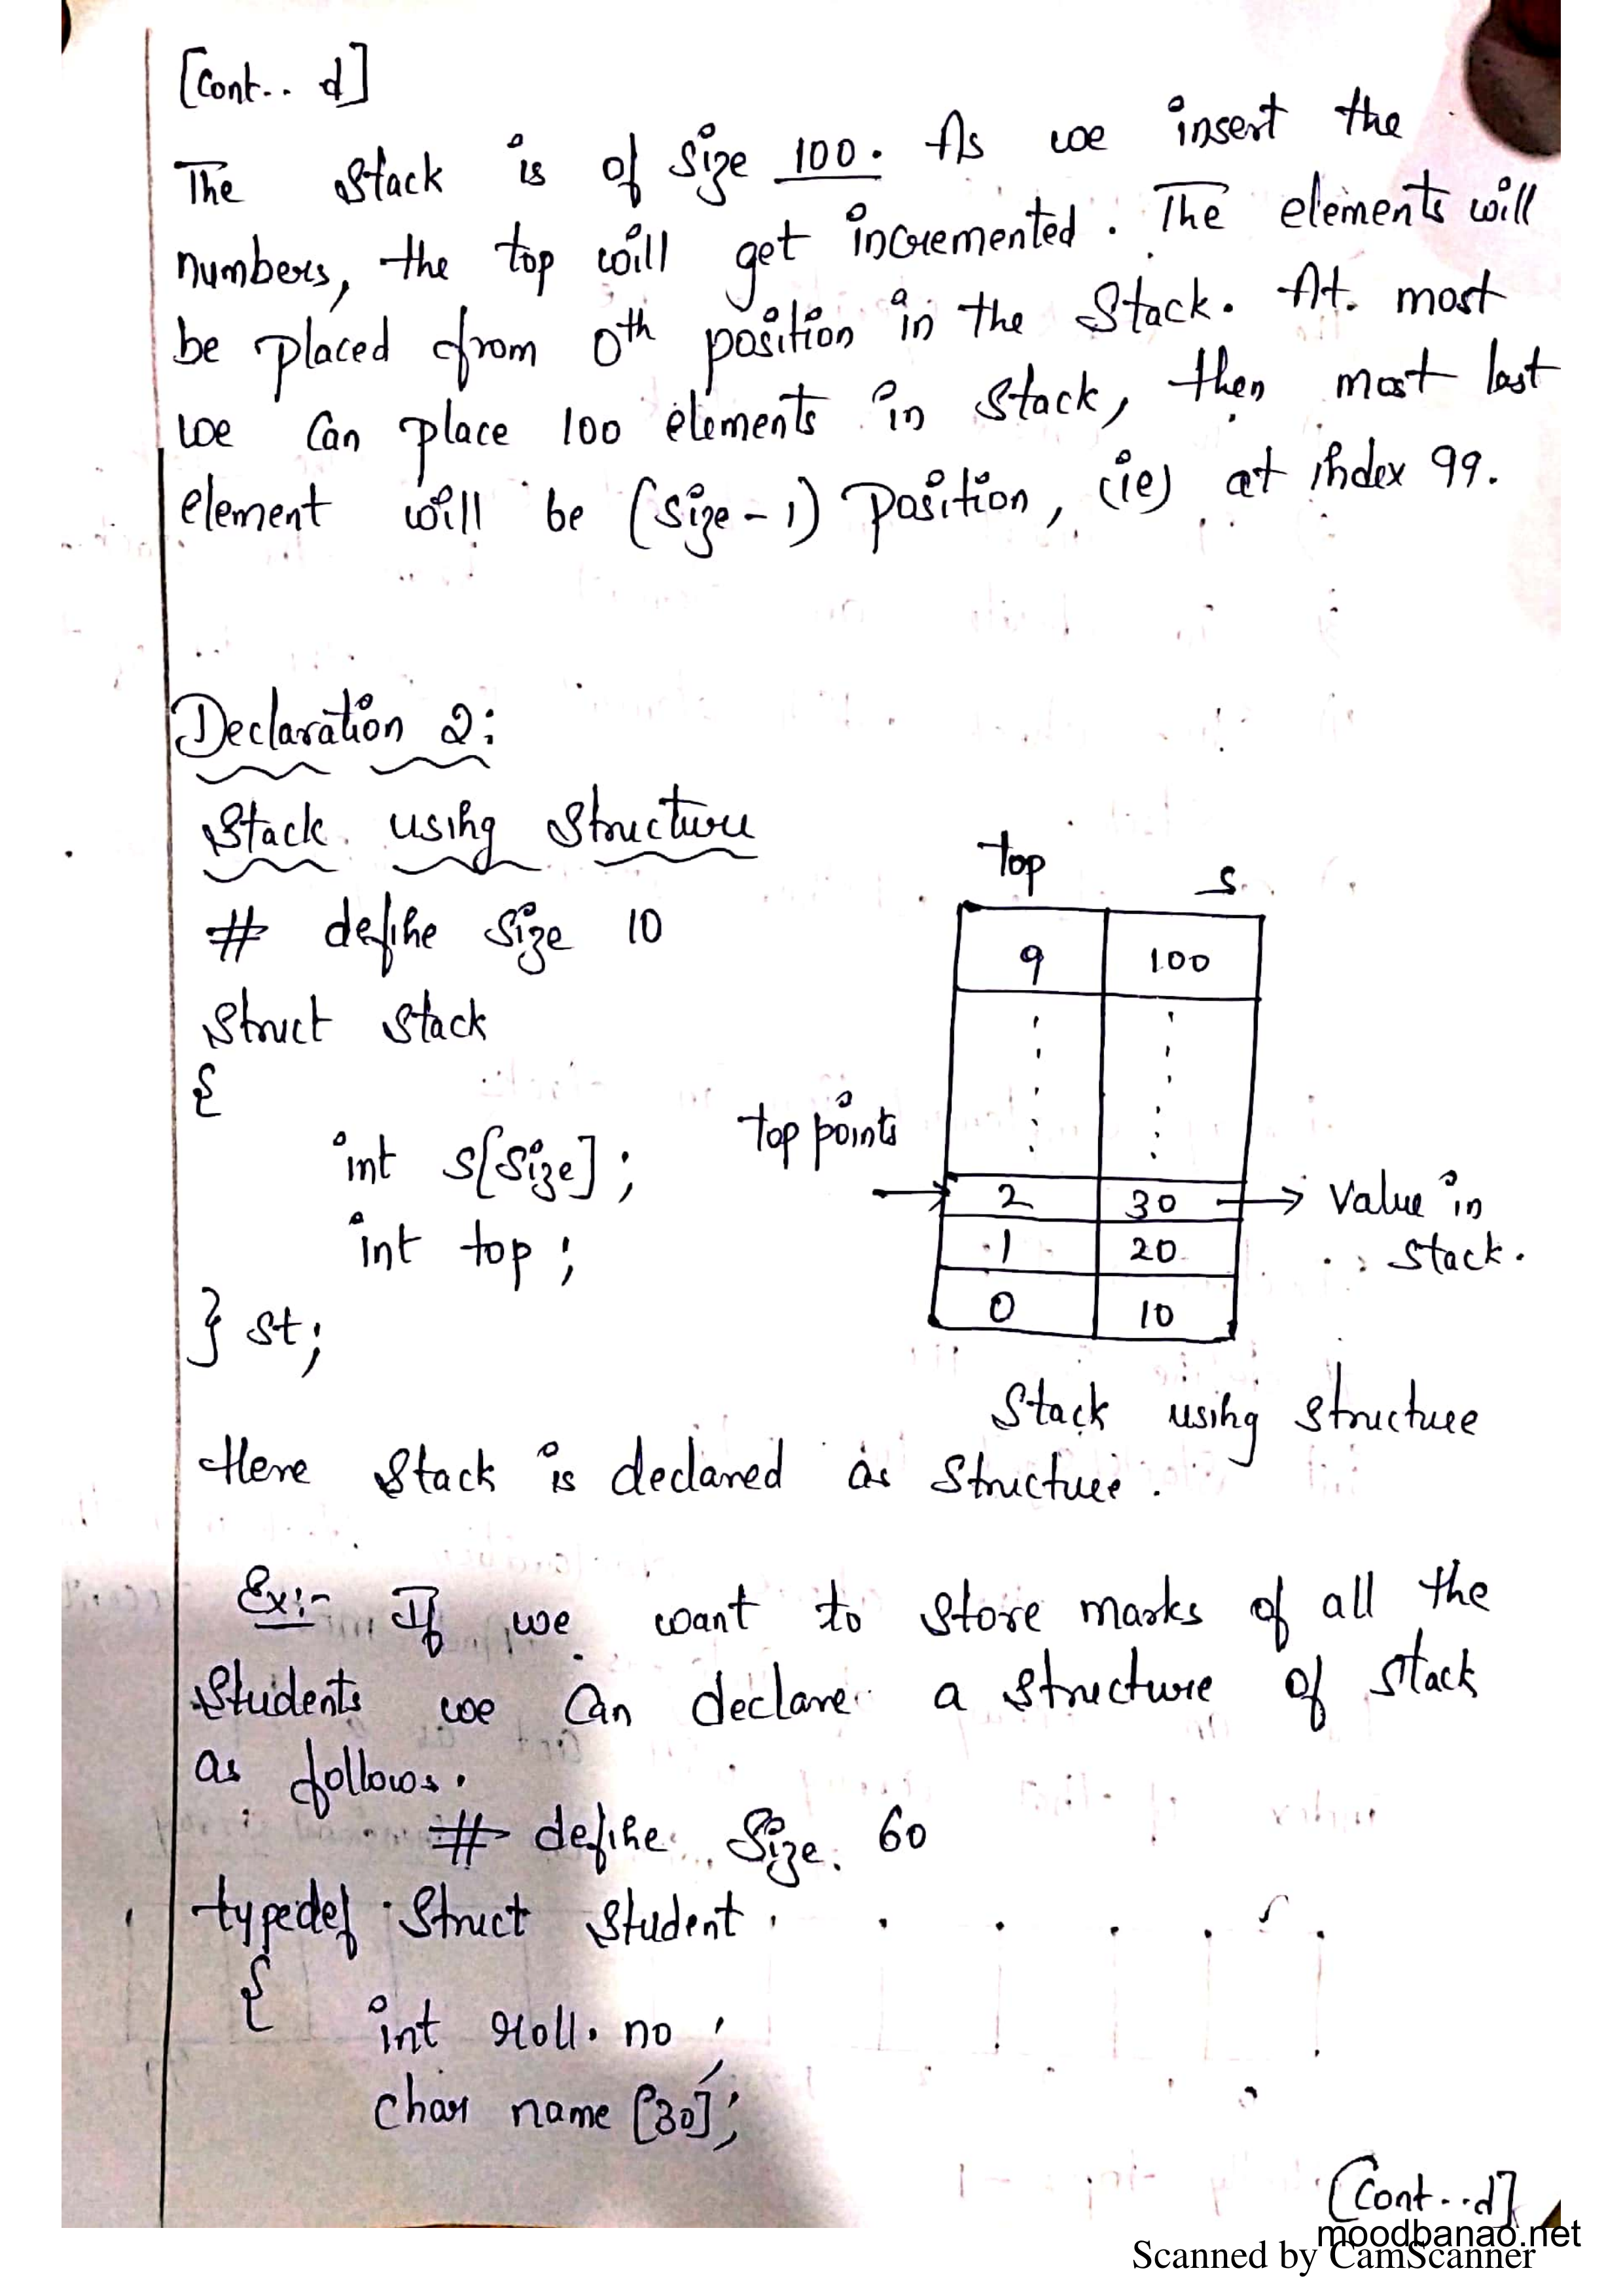 [Cont.. d]
The Stack is of Size 100. As we insert the
numbers, the top will get incremented. The elements will
be placed from 0th position in the Stack. At most
we Can place 100 elements in Stack, then most last
element will be (Size-1) Position, (ie) at index 99.
Declaration 2:
Stack using Structure
# define Size 10
Struct Stack
{
int s[size];
int top;
} st;
top s
9 100
top points
2 30 → Value in
1 20 Stack.
0 10
Stack using structure
Here Stack is declared as Structure.
Ex:- If we want to store marks of all the
Students we Can declare a structure of stack
as follows.
# define Size 60
typedef Struct Student
{
int roll. no;
char name [30];
[Cont...d]
moodbanao.net
Scanned by CamScanner